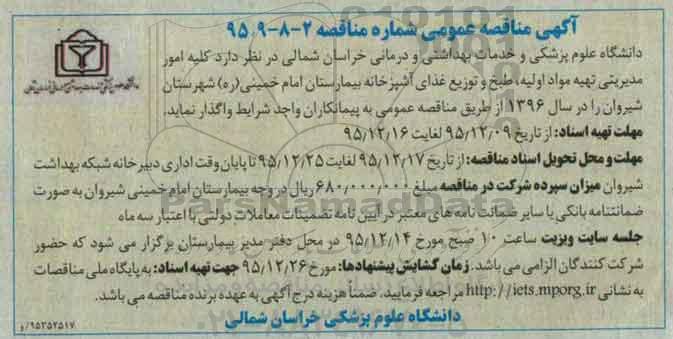 آگهی مناقصه عمومی شماره مناقصه ۲-۸-۹ ۹۵
دانشگاه علوم پزشکی و خدمات بهداشتی و درمانی خراسان شمالی در نظر دارد کلیه امور
مدیریتی تهیه مواد اولیه، طبخ و توزیع غذای آشپزخانه بیمارستان امام خمینی(ره) شهرستان
شیروان را در سال ۱۳۹۶ از طریق مناقصه عمومی به پیمانکاران واجد شرایط واگذار نماید.
مهلت تهیه اسناد: از تاریخ ۹۵/۱۲/۰۹ لغایت ۹۵/۱۲/۱۶
مهلت و محل تحویل اسناد مناقصه: از تاریخ ۹۵/۱۲/۱۷ لغایت ۹۵/۱۲/۲۵ تا پایان وقت اداری دبیرخانه شبکه بهداشت
شیروان میزان سپرده شرکت در مناقصه مبلغ ۶۸۰/۰۰۰/۰۰۰ ریال در وجه بیمارستان امام خمینی شیروان به صورت
ضمانتنامه بانکی یا سایر ضمانت نامه های معتبر در آیین نامه تضمینات معاملات دولتی با اعتبار سه ماه
جلسه سایت ویزیت ساعت ۱۰ صبح مورخ ۹۵/۱۲/۱۴ در محل دفتر مدیر بیمارستان برگزار می شود که حضور
شرکت کنندگان الزامی می باشد. زمان گشایش پیشنهادها: مورخ ۹۵/۱۲/۲۶ جهت تهیه اسناد: به پایگاه ملی مناقصات
به نشانی http://iets.mporg.ir مراجعه فرمایید. ضمناً هزینه درج آگهی به عهده برنده مناقصه می باشد.
دانشگاه علوم پزشکی خراسان شمالی
۹۵۲۵۲۵۱۷/و
ParsNamadData